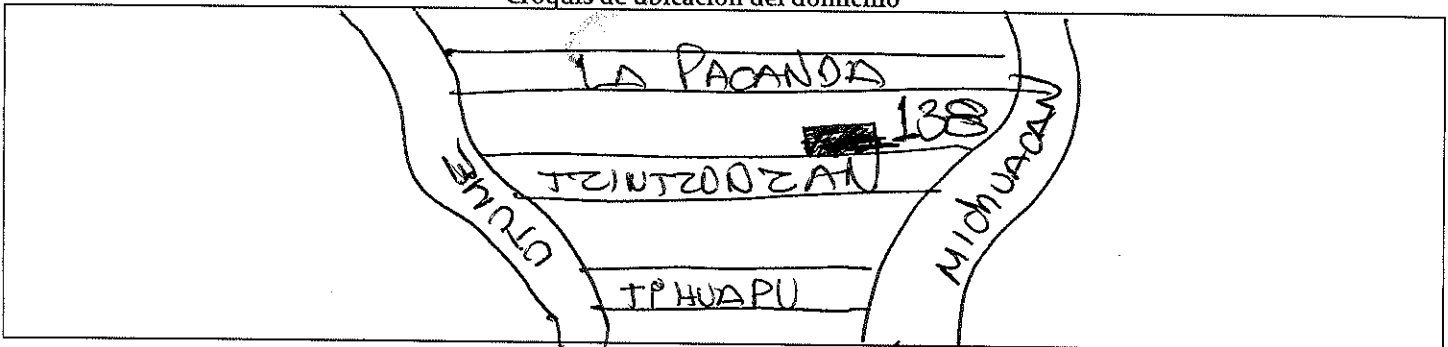 Croquis de ubicación del domicilio
LA PACANDA
138
TZINTZONZAN
OTUNE
MICHUACAN
IPHUAPU